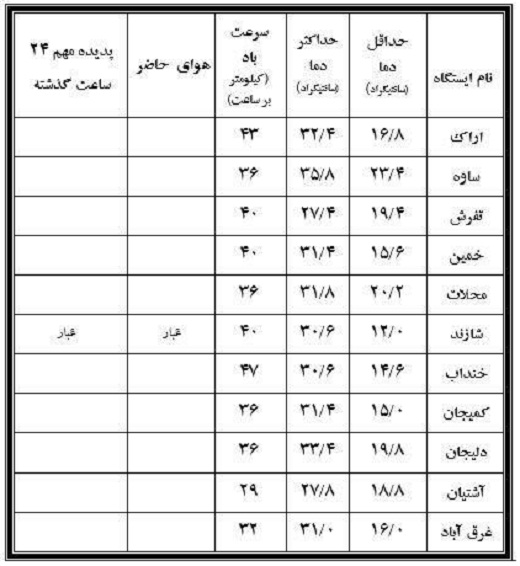 نام ایستگاه حداقل دما (سانتیگراد) حداکثر دما (سانتیگراد) سوعت باد (کیلومتر بر ساعت) هوای حاضر پدیده مهم ۲۴ ساعت گذشته
اراک ۱۶/۸ ۳۲/۴ ۴۳
ساوه ۲۳/۴ ۳۵/۸ ۳۶
تفرش ۱۹/۴ ۲۷/۴ ۴۰
خمین ۱۵/۶ ۳۱/۴ ۴۰
محلات ۲۰/۲ ۳۱/۸ ۳۶
شازند ۱۲/۰ ۳۰/۶ ۴۰ غبار غبار
خنداب ۱۴/۶ ۳۰/۶ ۴۷
کمیجان ۱۵/۰ ۳۱/۴ ۳۶
دلیجان ۱۹/۸ ۳۳/۴ ۳۶
آشتیان ۱۸/۸ ۲۷/۸ ۲۹
غرق آباد ۱۶/۰ ۳۱/۰ ۳۲